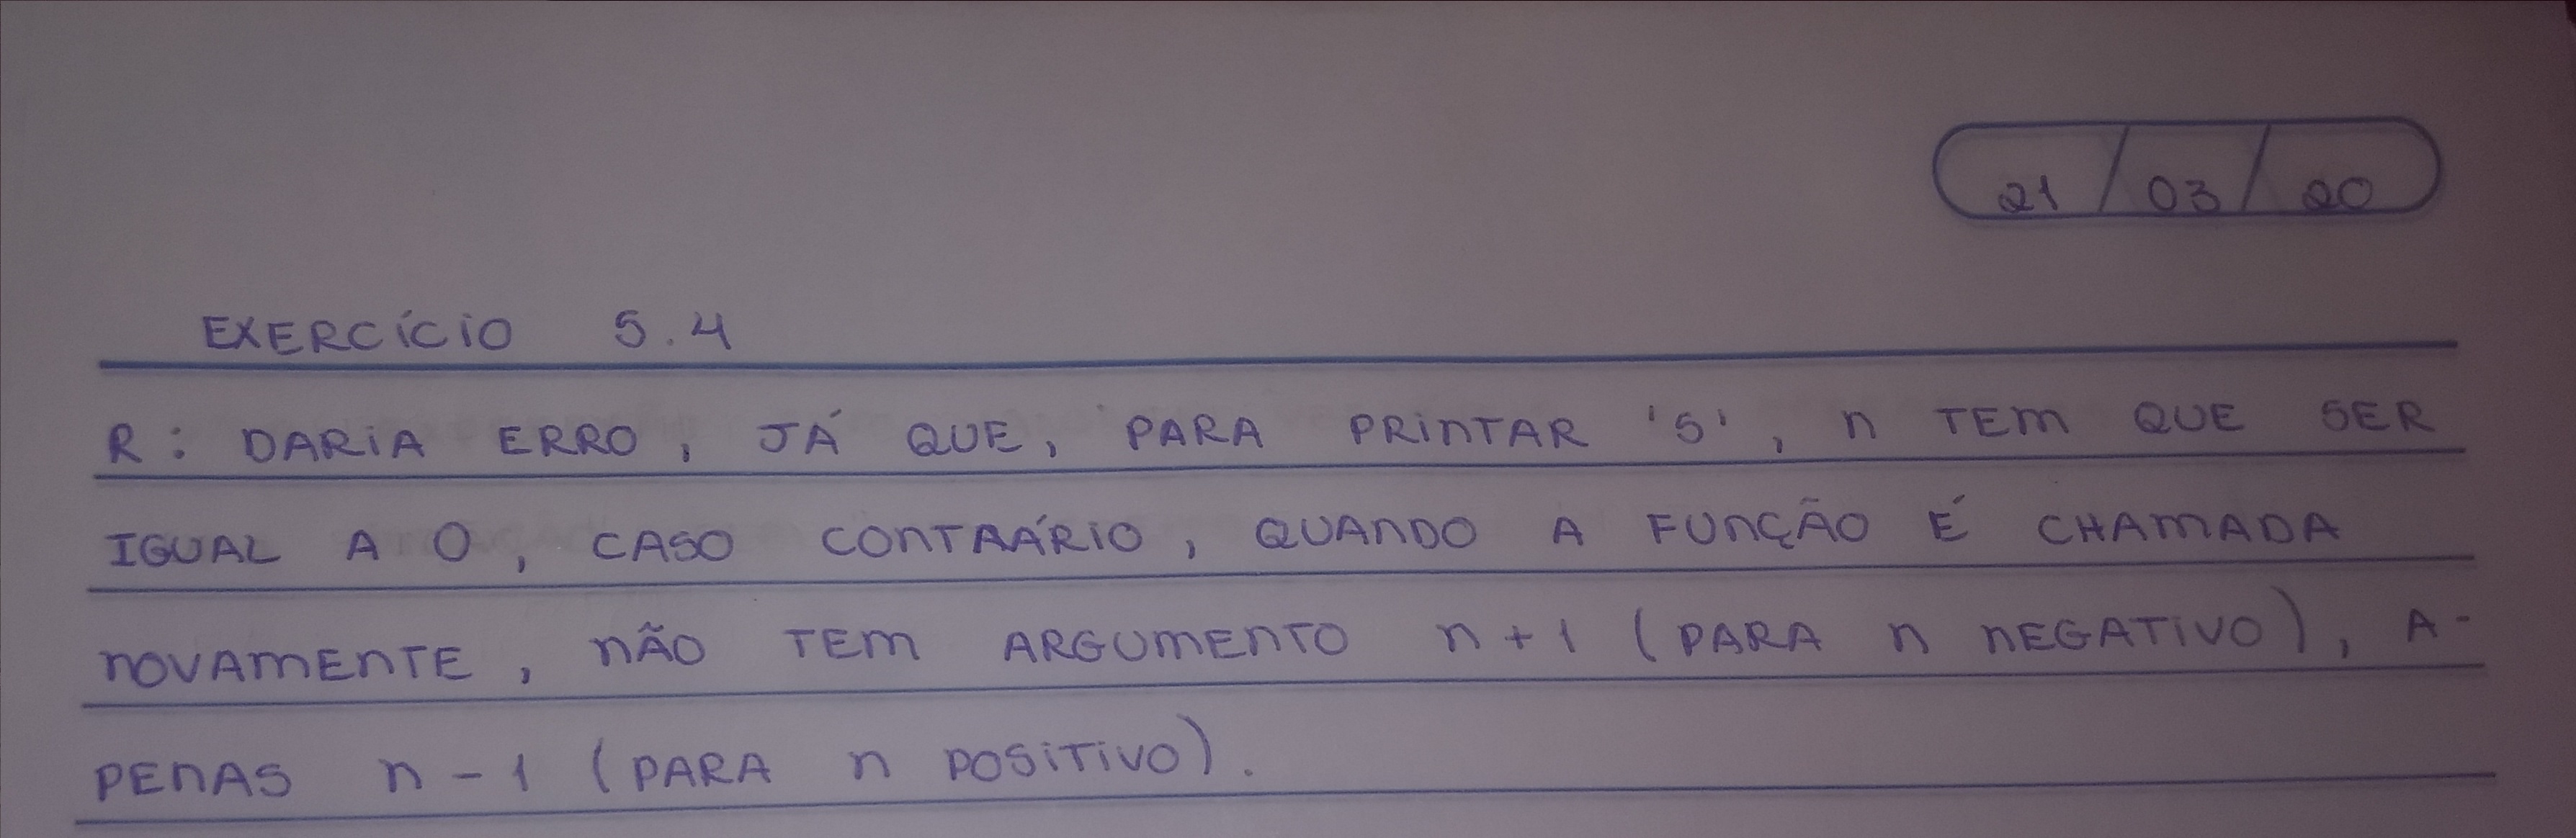 21/03/20
EXERCÍCIO 5.4
R: DARIA ERRO, JÁ QUE, PARA PRINTAR 's', n TEM QUE SER
IGUAL A 0, CASO CONTRÁRIO, QUANDO A FUNÇÃO É CHAMADA
NOVAMENTE, NÃO TEM ARGUMENTO n+1 (PARA n NEGATIVO), A-
PENAS n-1 (PARA n POSITIVO).